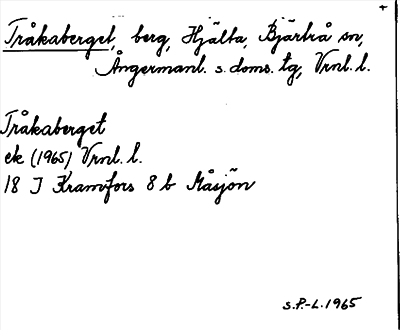 Tråkaberget, berg, Hjälta, Bjärtrå sn,
Ångermanl. s. doms. tg, Vrnl. l.
Tråkaberget
ek (1965) Vrnl. l.
18 I Kramfors 8 b Måsjön
S.P.-L. 1965